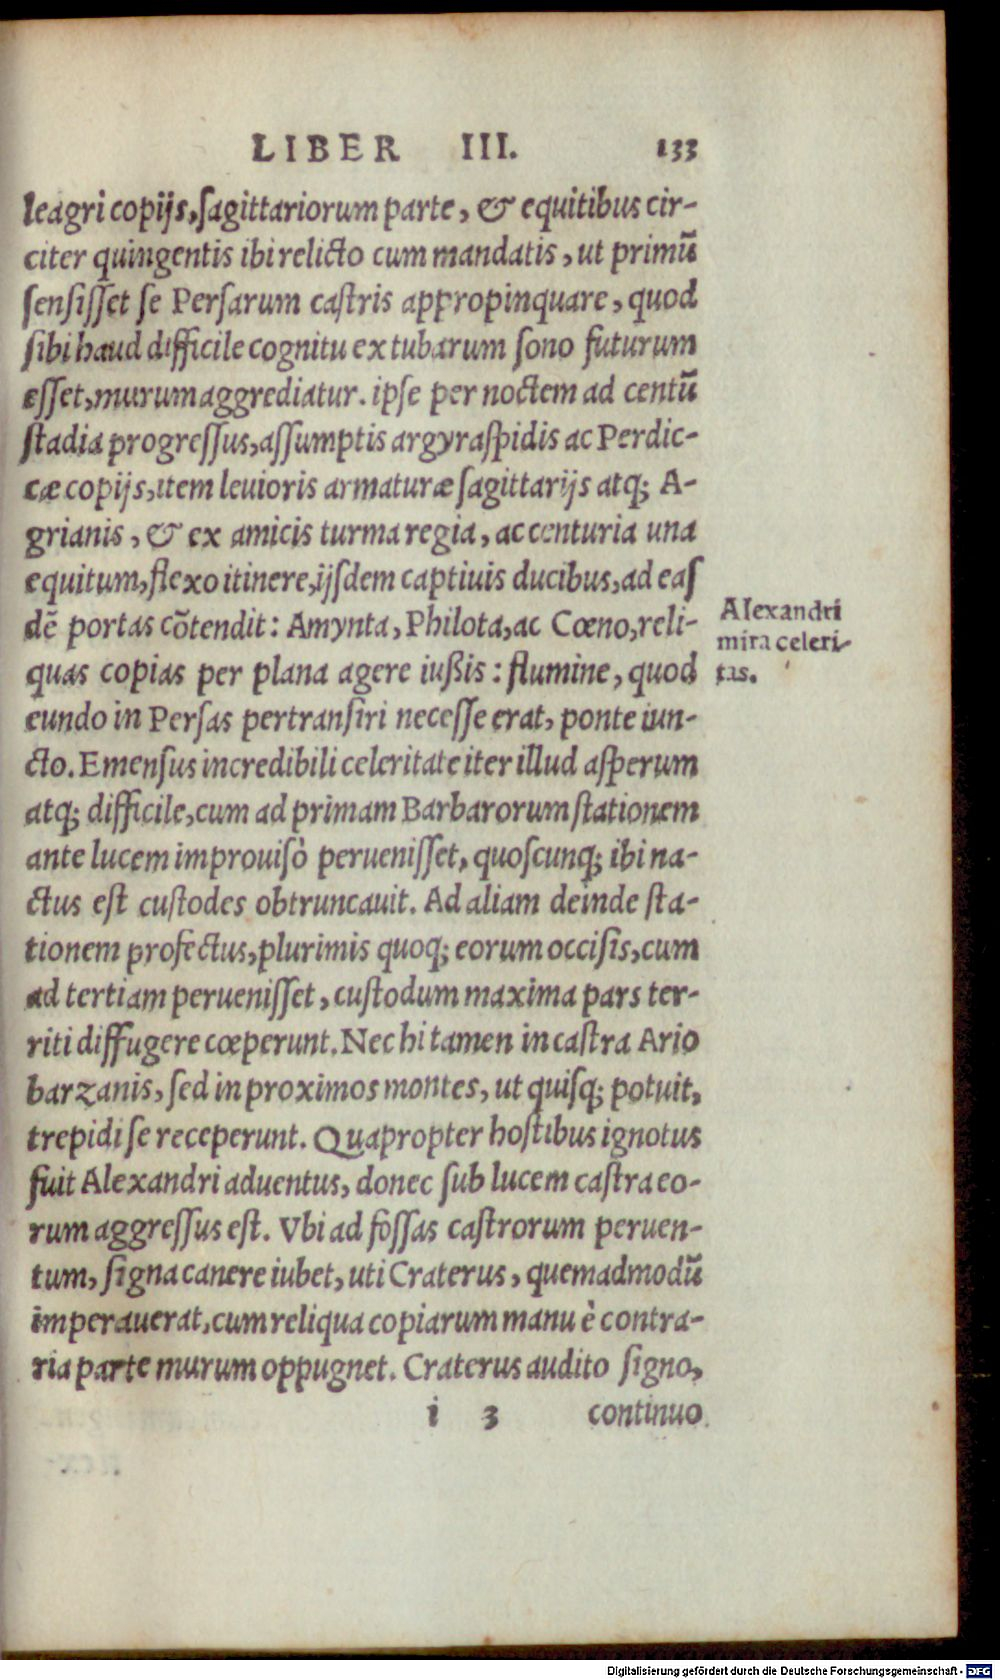 LIBER III. 133
leagri copijs, sagittariorum parte, & equitibus cir-
citer quingentis ibi relicto cum mandatis, ut primũ
sensisset se Persarum castris appropinquare, quod
sibi haud difficile cognitu ex tubarum sono futurum
esset, murum aggrediatur. ipse per noctem ad centũ
stadia progressus, assumptis argyraspidis ac Perdic-
cæ copijs, item leuioris armaturæ sagittarijs atq; A-
grianis, & ex amicis turma regia, ac centuria una
equitum, flexo itinere, ijsdem captiuis ducibus, ad eas
dē portas cōtendit: Amynta, Philota, ac Cœno, reli-
quas copias per plana agere iußis: flumine, quod
eundo in Persas pertransiri necesse erat, ponte iun-
cto. Emensus incredibili celeritate iter illud asperum
atq; difficile, cum ad primam Barbarorum stationem
ante lucem improuisò peruenisset, quoscunq; ibi na-
ctus est custodes obtruncauit. Ad aliam deinde sta-
tionem profectus, plurimis quoq; eorum occisis, cum
ad tertiam peruenisset, custodum maxima pars ter-
riti diffugere cœperunt. Nec hi tamen in castra Ario
barzanis, sed in proximos montes, ut quisq; potuit,
trepidi se receperunt. Quapropter hostibus ignotus
fuit Alexandri aduentus, donec sub lucem castra eo-
rum aggressus est. Vbi ad fossas castrorum peruen-
tum, signa canere iubet, uti Craterus, quemadmodũ
imperauerat, cum reliqua copiarum manu è contra-
ria parte murum oppugnet. Craterus audito signo,
i 3 continuo
Alexandri
mira celeri-
tas.
Digitalisierung gefördert durch die Deutsche Forschungsgemeinschaft - DFG